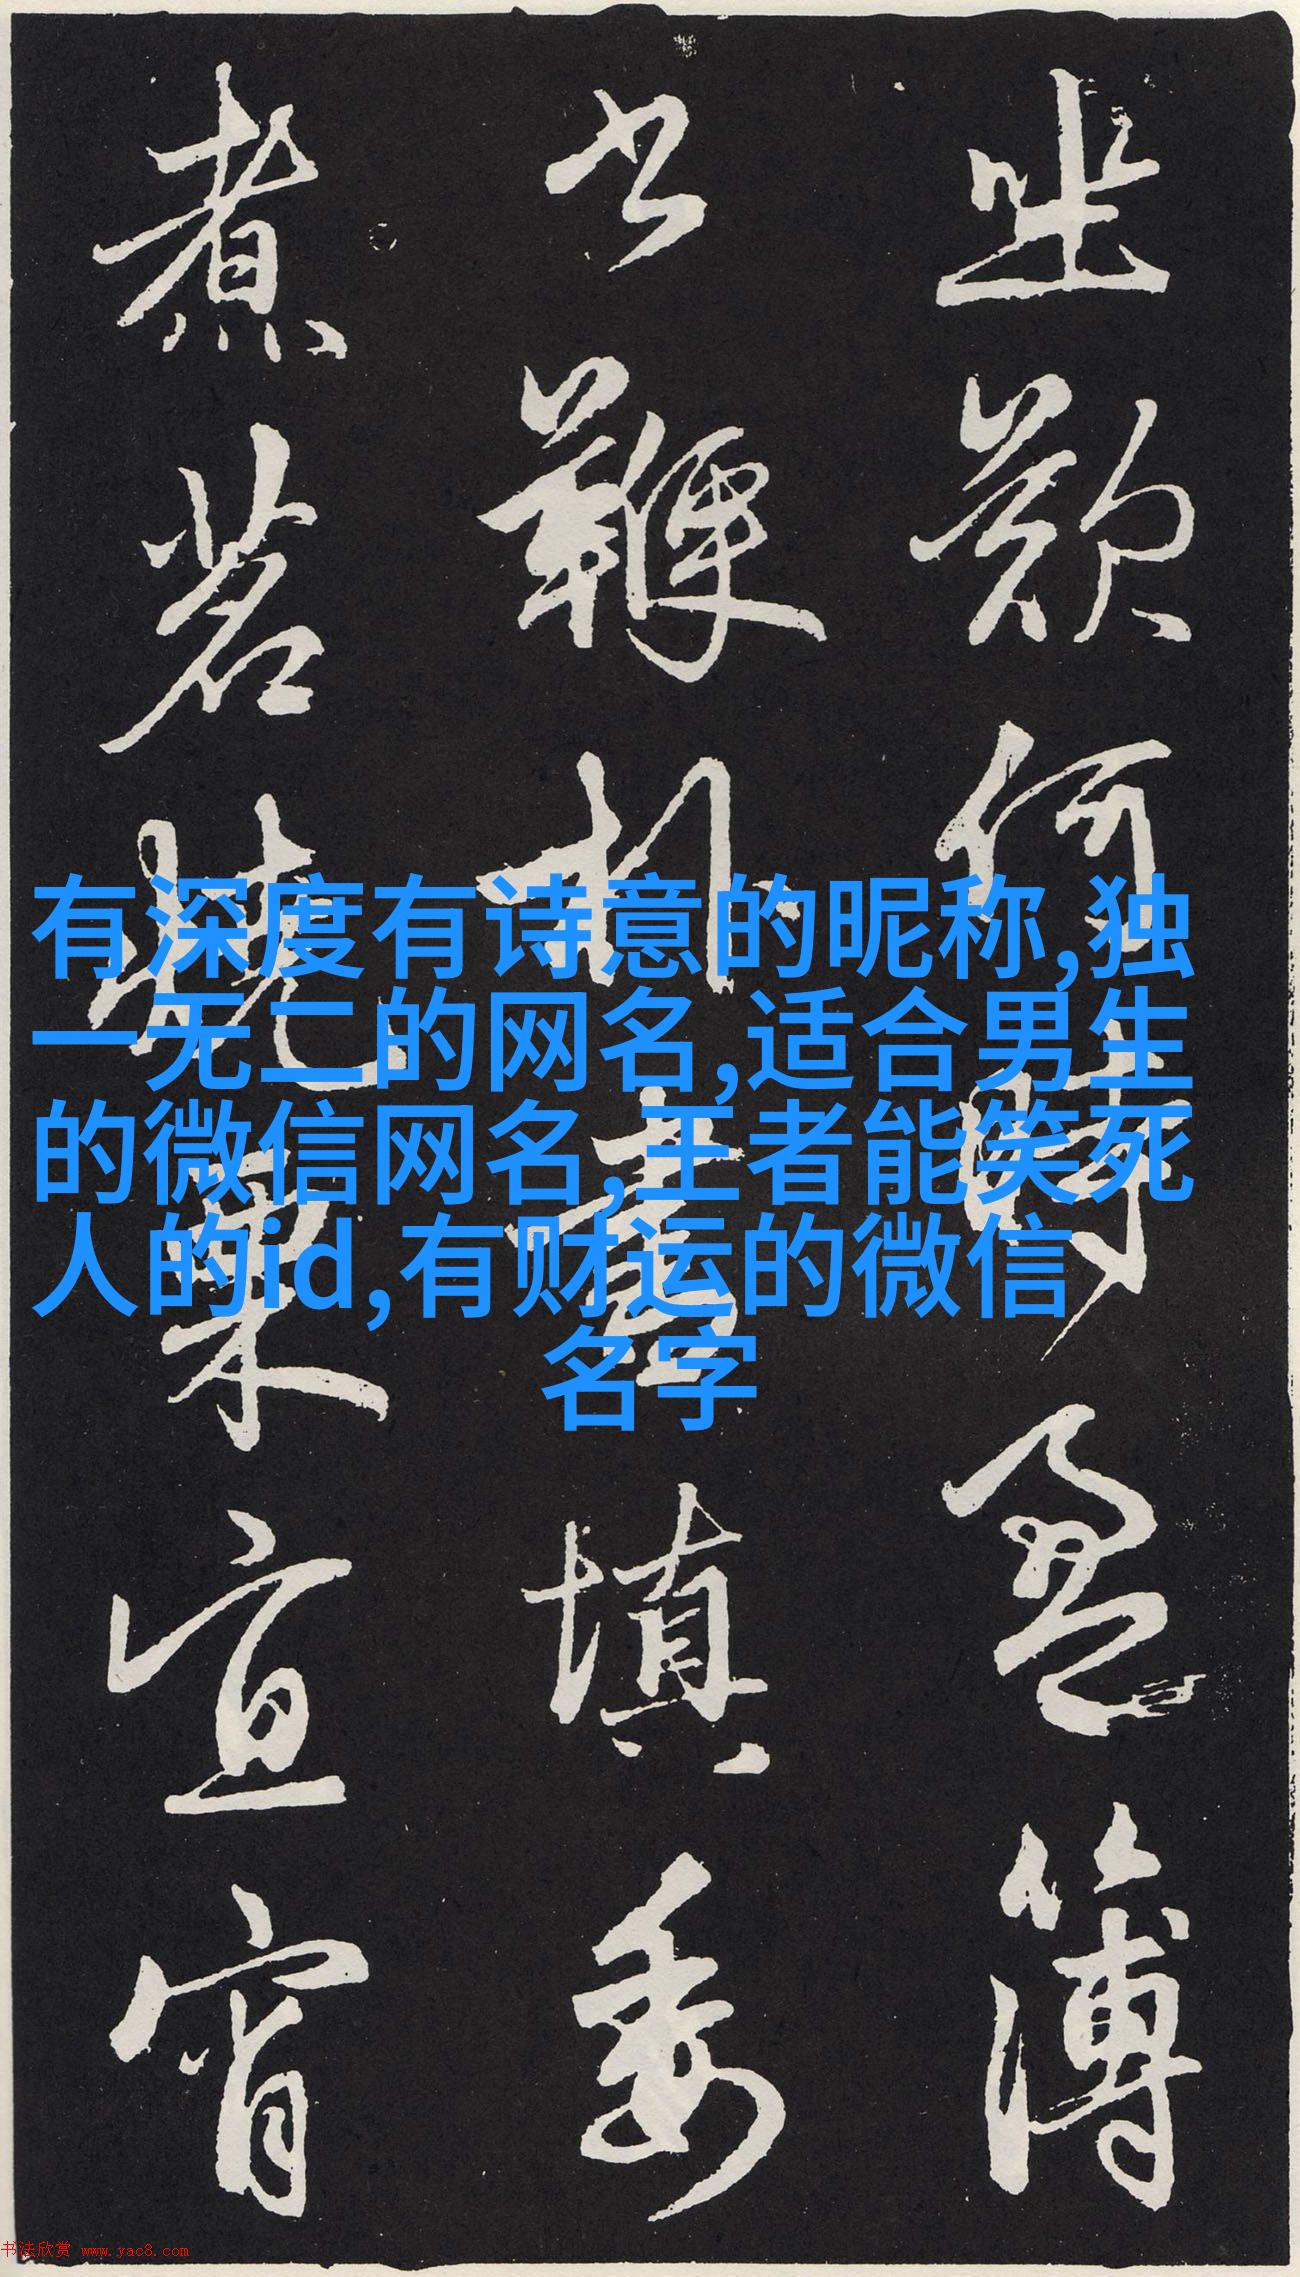 坐歎何時盈簿
书鞭朴晝填委
煮茗燒栗宜宵
有深度有诗意的昵称,独
一无二的网名,适合男生
的微信网名,王者能笑死
人的id,有财运的微信
名字
书法欣赏 www.yac8.com